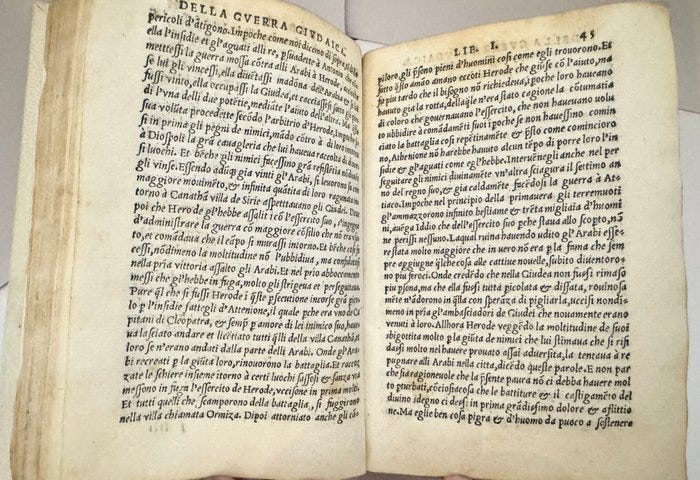 DELLA GVERRA GIVDAICA
pericoli d'ãtigono. Impoche come noi dicemo di sopra, si che
ella l'insidie et gl'aguati alli re, psuadette à Antonio che cõ
mettessi la guerra mossa cõtra alli Arabi à Herode, accioche
se lui gli vincessi, ella diuẽtassi madõna dell'Arabia & si
fussi vinto, ella occupassi la Giudea, et cacciassesi
di l'vna delli due potẽtie, mediãte l'aiuto dell'altra. Ma
sua voluta procedette secõdo l'arbitrio d'Herode, Impoche
si in prima gli pegni de nimici, madò cõtro à di loro
à Diospoli la grã caualleria che lui haueua raccolta di
si luochi. Et bẽche gli nimici facessino grã resistẽtia nõdimeno
gli vinse. Essendo adũq; gia vinti gl'Arabi, si leuorono
maggiore mouimẽto, & infinita quãtita di loro ragunato in
torno à Canathã villa de Sirie aspettauano gli Giudei. Dipoi
poi che Herode gl'hebbe assaliti cõ l'essercito suo,
d'administrare la guerra cõ maggiore cõsilio che nõ era
to, et comãdaua che il cãpo si murassi intorno. Et bẽche cosi
cessi, nõdimeno la moltitudine nõ l'ubbidiua, ma confidandosi
nella pria vittoria assalto gli Arabi. Et nel prio abboccamento
messi che gl'hebbe in fuga, molto gli strigeua et perseguitaua.
Pure q̃l che si fussi Herode i q̃sta psecutione incorse grã
lo p l'insidie fattegli d'Attenione, il quale pche era vno de Ca
pitani di Cleopatra, & semp̃ p amore di lei inimico suo, haue
ua lasciato andare et licẽtiato tutti q̃lli della villa Canathã, et
loro se n'erano andati dalla parte delli Arabi. Onde gl'Ara
bi recreati p la giũta loro, rinouorono la battaglia. Et raccoz
zate le schiere insieme intorno à certi luochi sassosi & sanza via
messono in fuga l'essercito de Herode, vccisone in prima molti.
Et tutti quelli che scamporono della battaglia, si fuggirono
nella villa chiamata Ormiza. Dipoi attorniato anche gli cã-
LIB. I. 45
pi loro, gli p̃sono pieni d'huomini cosi come egli trouorono. Et
fatto q̃sto amão amano eccoti Herode che giũse cõ l'aiuto, ma
fu piu tardo che il bisogno nõ richiedeua, poiche loro haueano
hauuto gia la rotta, della q̃le n'era stato cagione la cõtumatia
di coloro che gouernauano l'essercito, che non haueuano volu
to vbbidire à comãdamẽti suoi ipoche se non hauessino comin
ciato la battaglia cosi repentinamẽte & p̃sto come cominciorono
, Athenione nõ harebbe hauuto alcun tẽpo di porre loro l'in
sidie & gl'aguati come egl'hebbe. Interuẽnegli anche nel per
seguitare gli nimici diuinamẽte vn'altra sciagura il settimo an
no del regno suo, & gia caldamẽte facẽdosi la guerra à At-
tiaco. Impoche nel principio della primauera gli terremuoti
gl'ammazzorono infinito bestiame & trẽta migliaia d'huomi
ni, auẽga Iddio che dell'essercito suo pche staua allo scopto, nõ
ne perissi nessuno. Laqual ruina hauendo udito gl'Arabi esse-
re stata molto maggiore che in uero nõ era p la fama che sem
pre aggiugne q̃lche cosa alle cattiue nouelle, subito diuentoro-
no piu feroci. Onde credẽdo che nella Giudea non fussi rimaso
piu p̃sona, ma che ella fussi tutta picolata & disfatta, rouinosa
mẽte n'ãdorono in q̃lla cõ speraza di pigliarla, uccisi nondi-
meno in pria gl'ambasciadori de Giudei che nouamente erano
venuti à loro. Allhora Herode veggẽdo la moltitudine de suoi
sbigottita molto p la giũta de nimici che lui stimaua che si rifi
dassi molto nel hauere prouato assai aduersita, la tentaua à re
pugnare alli Arabi nella citta, dicẽdo queste parole. E non par
che sia ragioneuole che la p̃sente paura nõ ci debba hauere mol
to pturbati, cõciosiacosa che le battiture & il castigamẽto del
diuino idegno ci dessi in prima grãdissimo dolore & aflittio
ne. Ma egli è ben cosa pigra & d'huomo da puoco à sostenere